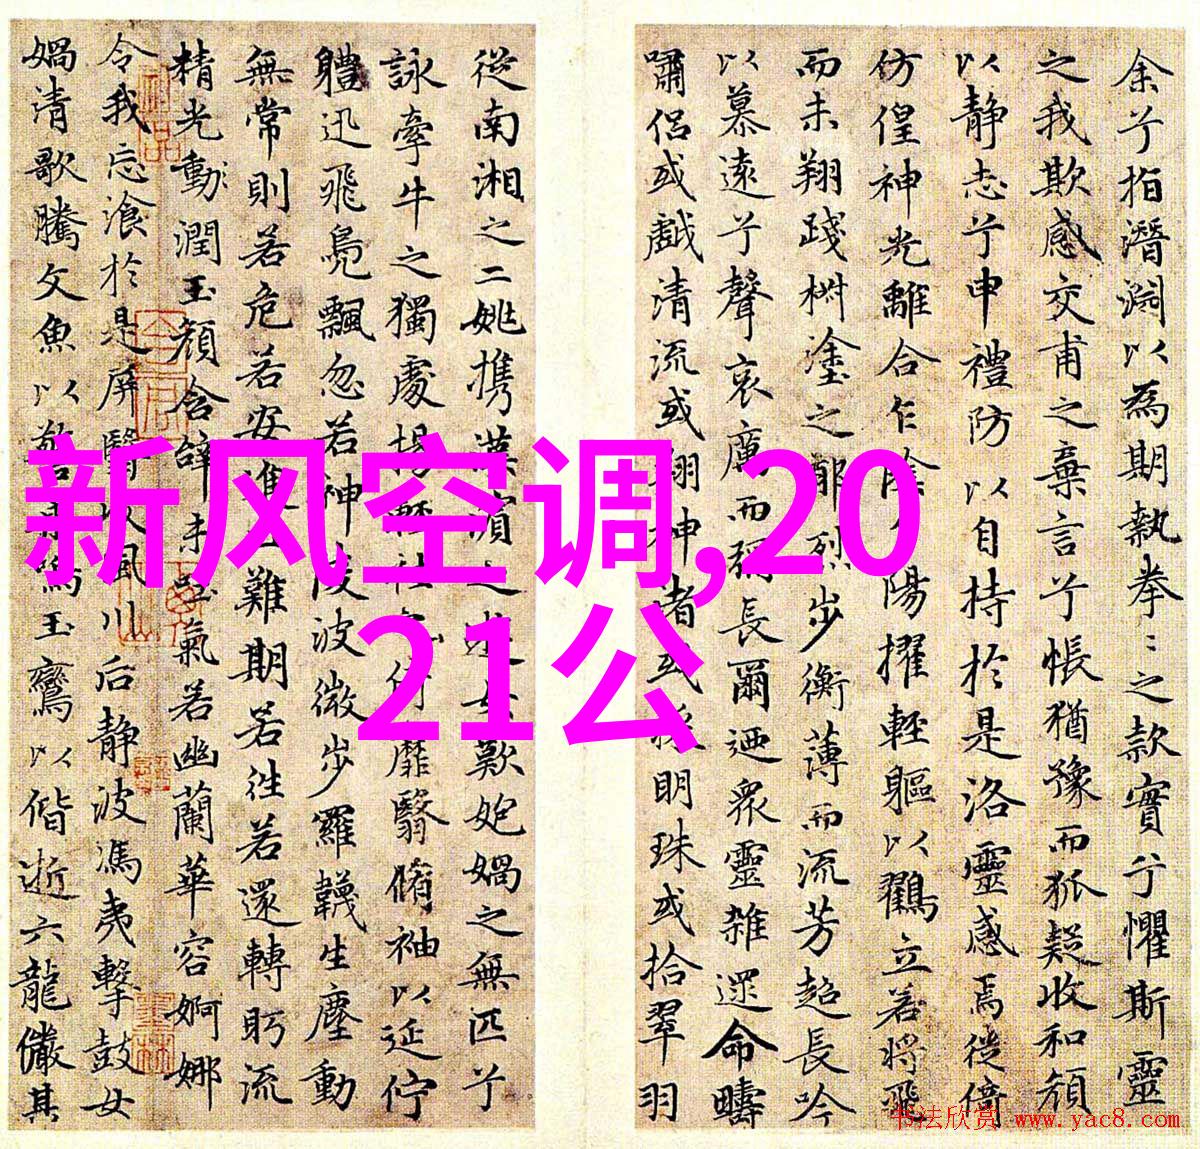 余兮指潛淵以為期執拳〻之款實兮懼斯靈
之我欺感交甫之棄言兮悵猶豫而狐疑收和顏
以静志兮申禮防以自持於是洛靈感焉徙倚
仿偟神光離合乍陰陽擢輕軀以鶴立若將飛
而未翔踐椒塗之郁烈步衡薄而流芳超長吟
以慕遠兮聲哀厲而彌長爾迺衆靈雜遝命疇
嘯侶或戲清流或翔神渚或採明珠或拾翠羽
從南湘之二姚攜漢濱之遊女歎匏媧之無匹兮
詠牽牛之獨處揚輕袿之倚靡翳脩袖以延佇
體迅飛鳧飄忽若神陵波微步羅韈生塵動
無常則若危若安進難期若往若還轉眄流
精光動潤玉顏含辭未吐氣若幽蘭華容婀娜
令我忘飡於是屏翳收風川后静波馮夷擊鼓女
媧清歌騰文魚以警乘鳴玉鸞以偕逝六龍儼其
新风空调,20
21公
书法欣赏 www.yac8.com